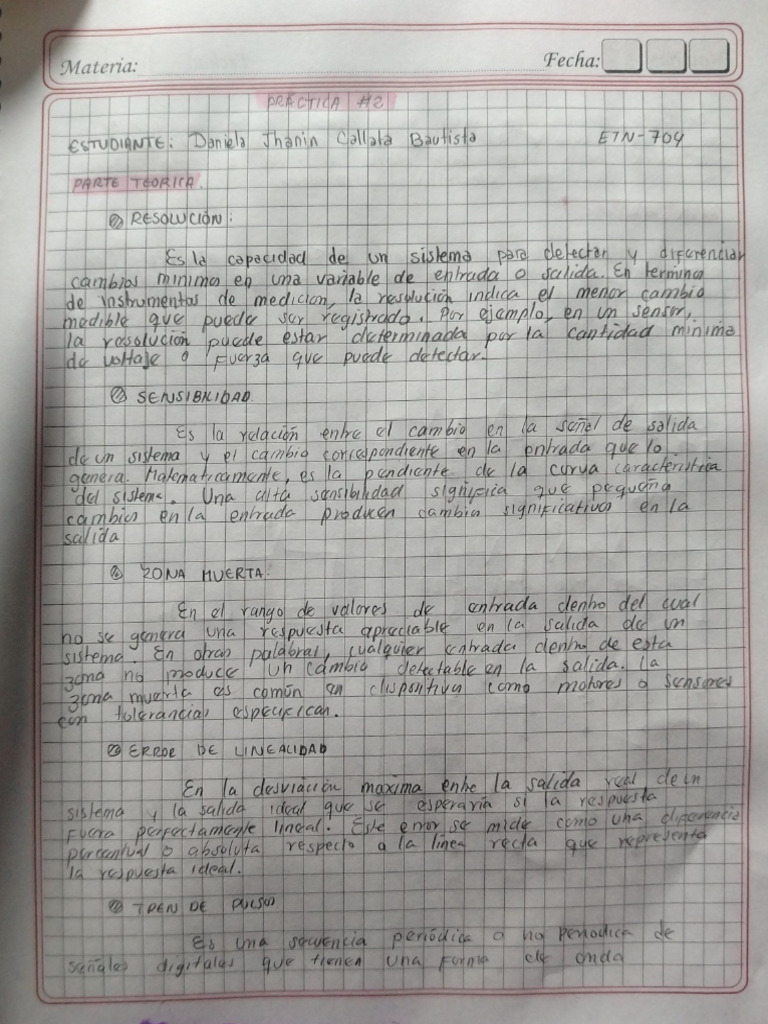 Materia:
Fecha:
PRÁCTICA #2
ESTUDIANTE: Daniela Jhanin Callata Bautista ETN-704
PARTE TEORICA.
RESOLUCIÓN:
Es la capacidad de un sistema para detectar y diferenciar
cambios minimos en una variable de entrada o salida. En termino
de instrumentos de medicion, la resolución indica el menor cambio
medible que puede ser registrado. Por ejemplo, en un sensor,
la resolución puede estar determinada por la cantidad minima
de voltaje o fuerza que puede detectar.
SENSIBILIDAD.
Es la relación entre el cambio en la señal de salida
de un sistema y el cambio correspondiente en la entrada que lo
genera. Matematicamente, es la pendiente de la curva caracteristica
del sistema. Una alta sensibilidad significa que pequeños
cambios en la entrada producen cambios significativos en la
salida
ZONA MUERTA.
En el rango de valores de entrada dentro del cual
no se genera una respuesta apreciable en la salida de un
sistema. En otras palabras, cualquier entrada dentro de esta
zona no produce un cambio detectable en la salida. la
zona muerta es común en dispositivos como motores o sensores
con tolerancias especifican.
ERROR DE LINEALIDAD
En la desviación maxima entre la salida real de un
sistema y la salida ideal que se esperaria si la respuesta
fuera perfectamente lineal. Este error se mide como una diferencia
porcentual o absoluta respecto a la línea recta que representa
la respuesta ideal.
TREN DE PULSOS
Es una secuencia periódica o no periodica de
señales digitales que tienen una forma de onda